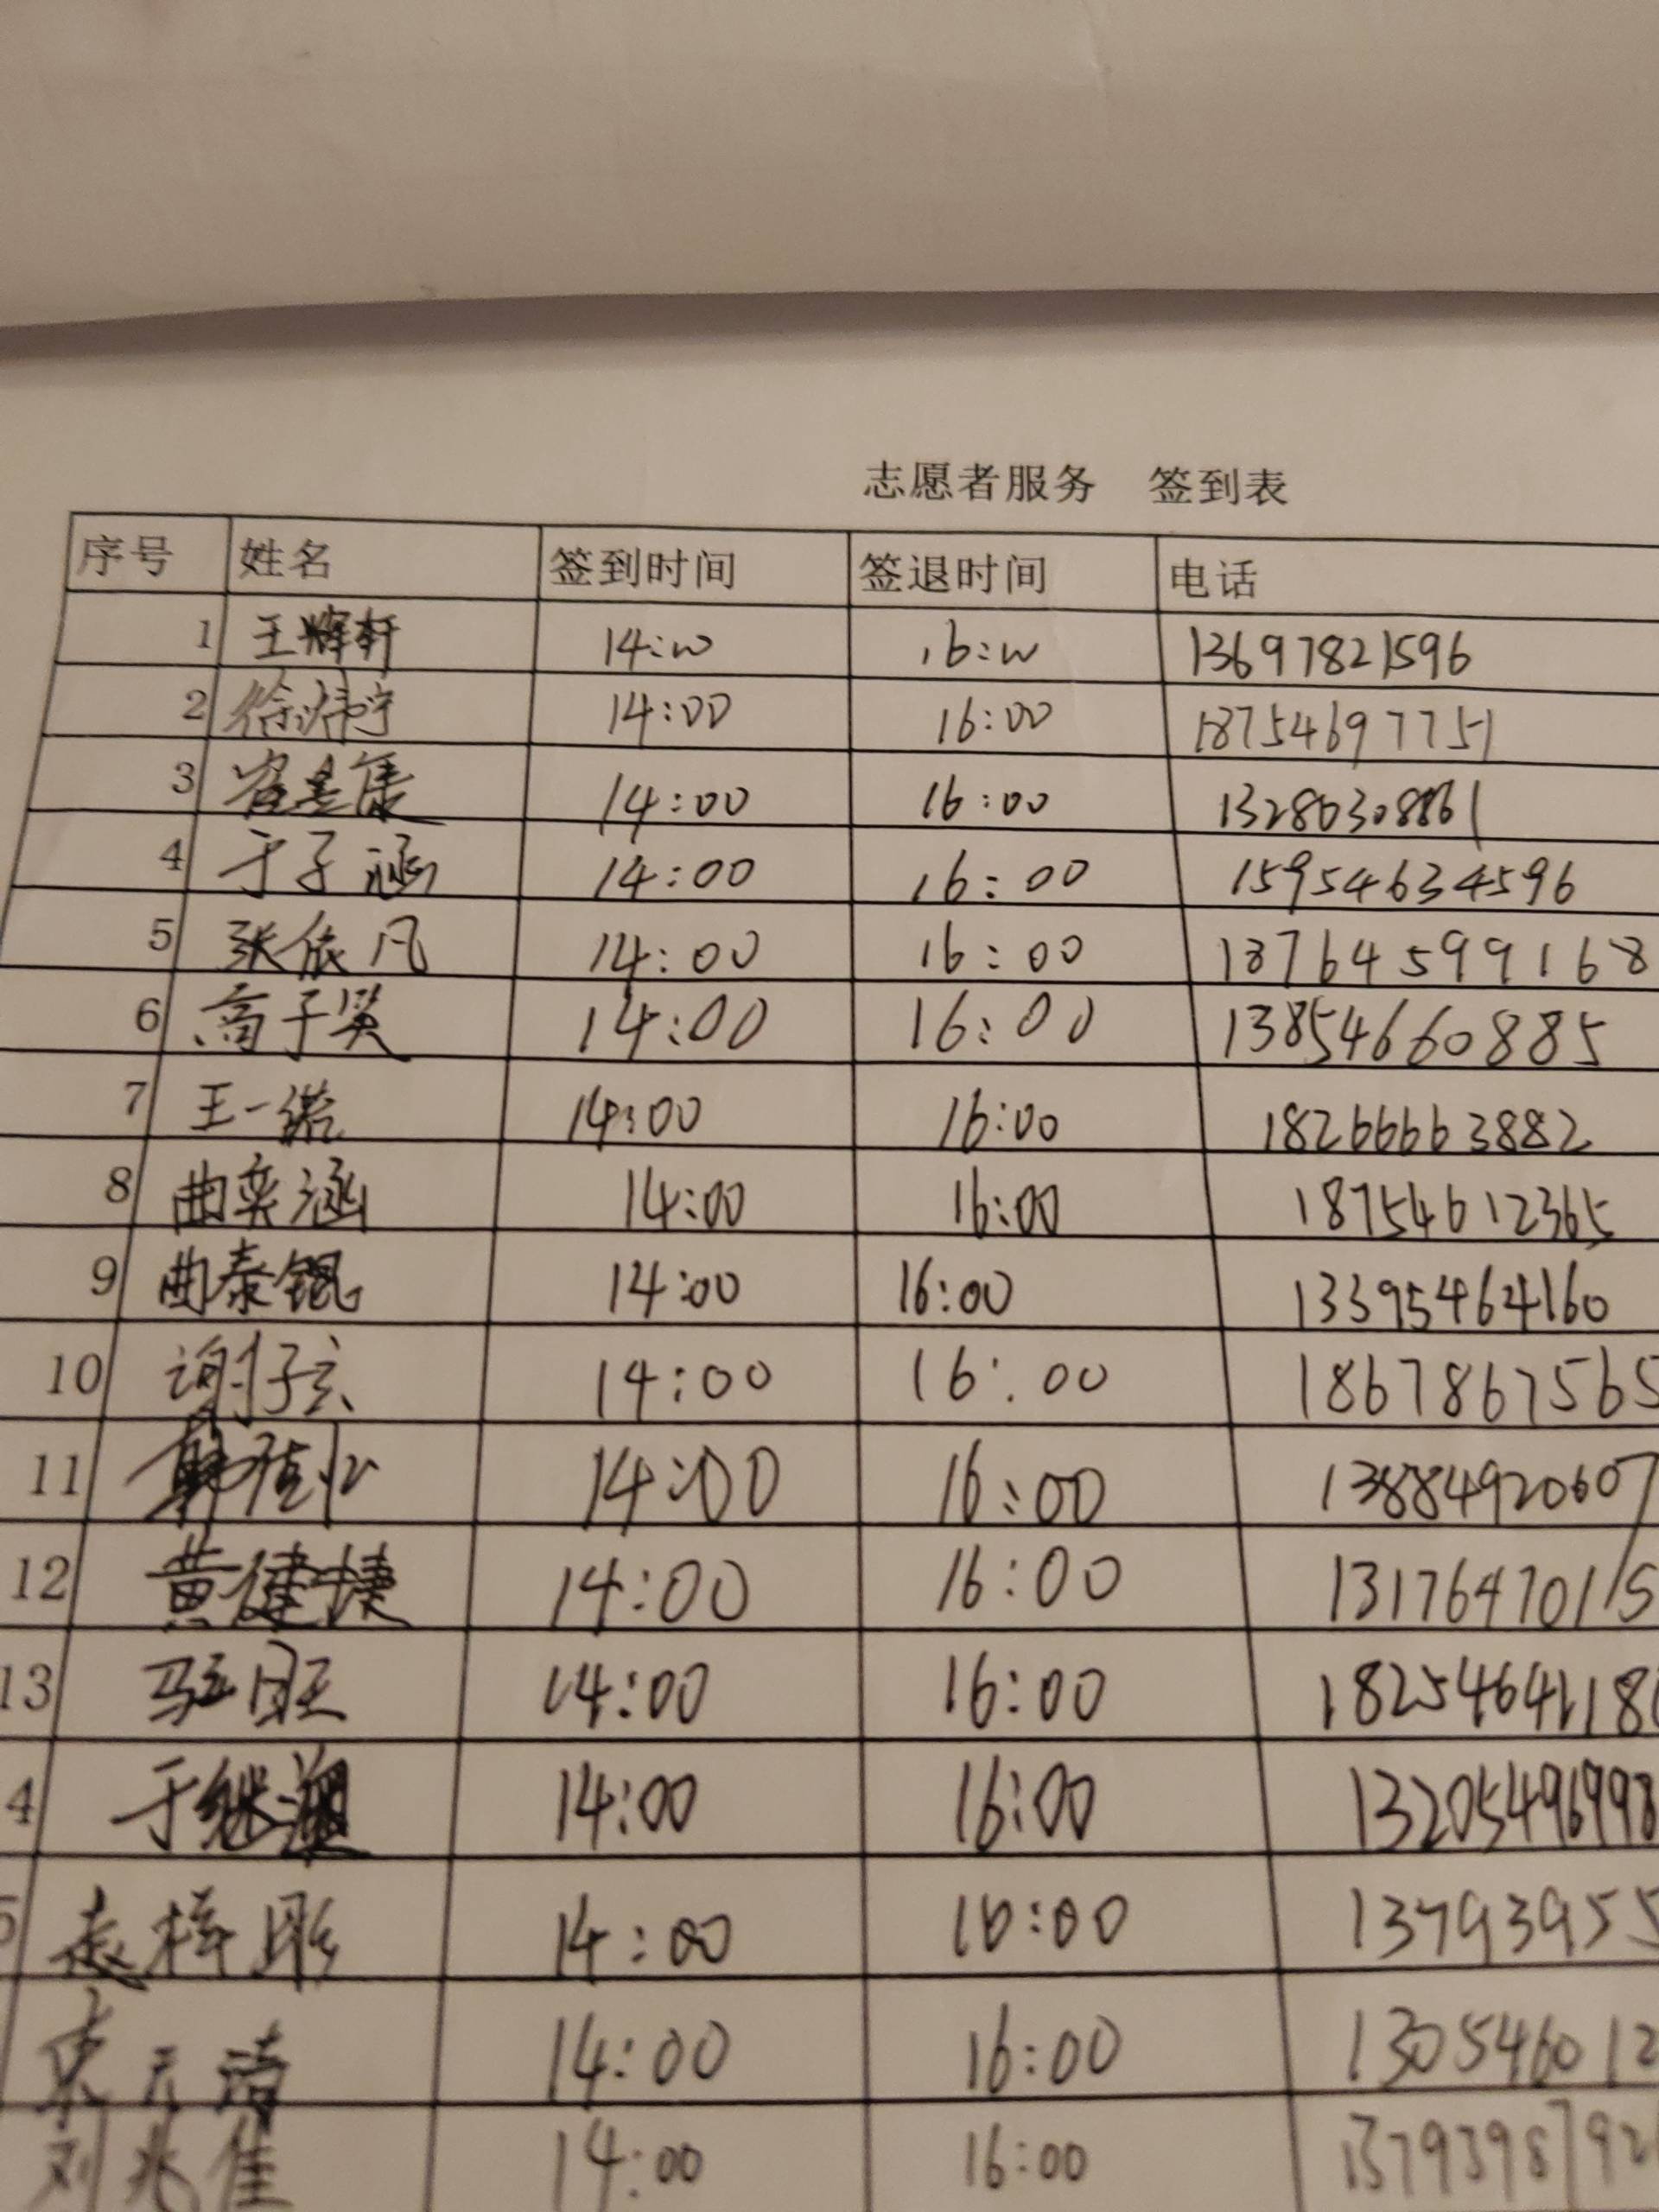 志愿者服务 签到表
序号 姓名 签到时间 签退时间 电话
1 王辉轩 14:00 16:00 13697821596
2 徐炜宁 14:00 16:00 18754697751
3 14:00 16:00
4 于子涵 14:00 16:00 15954634596
5 张依凡 14:00 16:00 18764599168
6 高子英 14:00 16:00 13854660885
7 王一诺 14:00 16:00 18266663882
8 曲奕涵 14:00 16:00 18754612365
9 曲泰锟 14:00 16:00 13395464160
10 谢仔玄 14:00 16:00 1867867565
11 14:00 16:00 13884920607
12 黄健捷 14:00 16:00 1317647011S
13 14:00 16:00 1825464118
4 于继澳 14:00 16:00 13205496998
5 袁梓彤 14:00 16:00 13793955
14:00 16:00 130546012
刘兆佳 14:00 16:00 1379398792